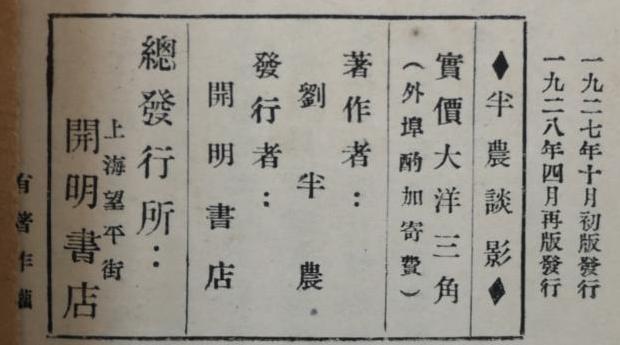 一九二七年十月初版發行
一九二八年四月再版發行
♦半農談影♦
實價大洋三角
（外埠酌加寄費）
著作者：
劉半農
發行者：
開明書店
總發行所：
上海望平街
開明書店
有著作權